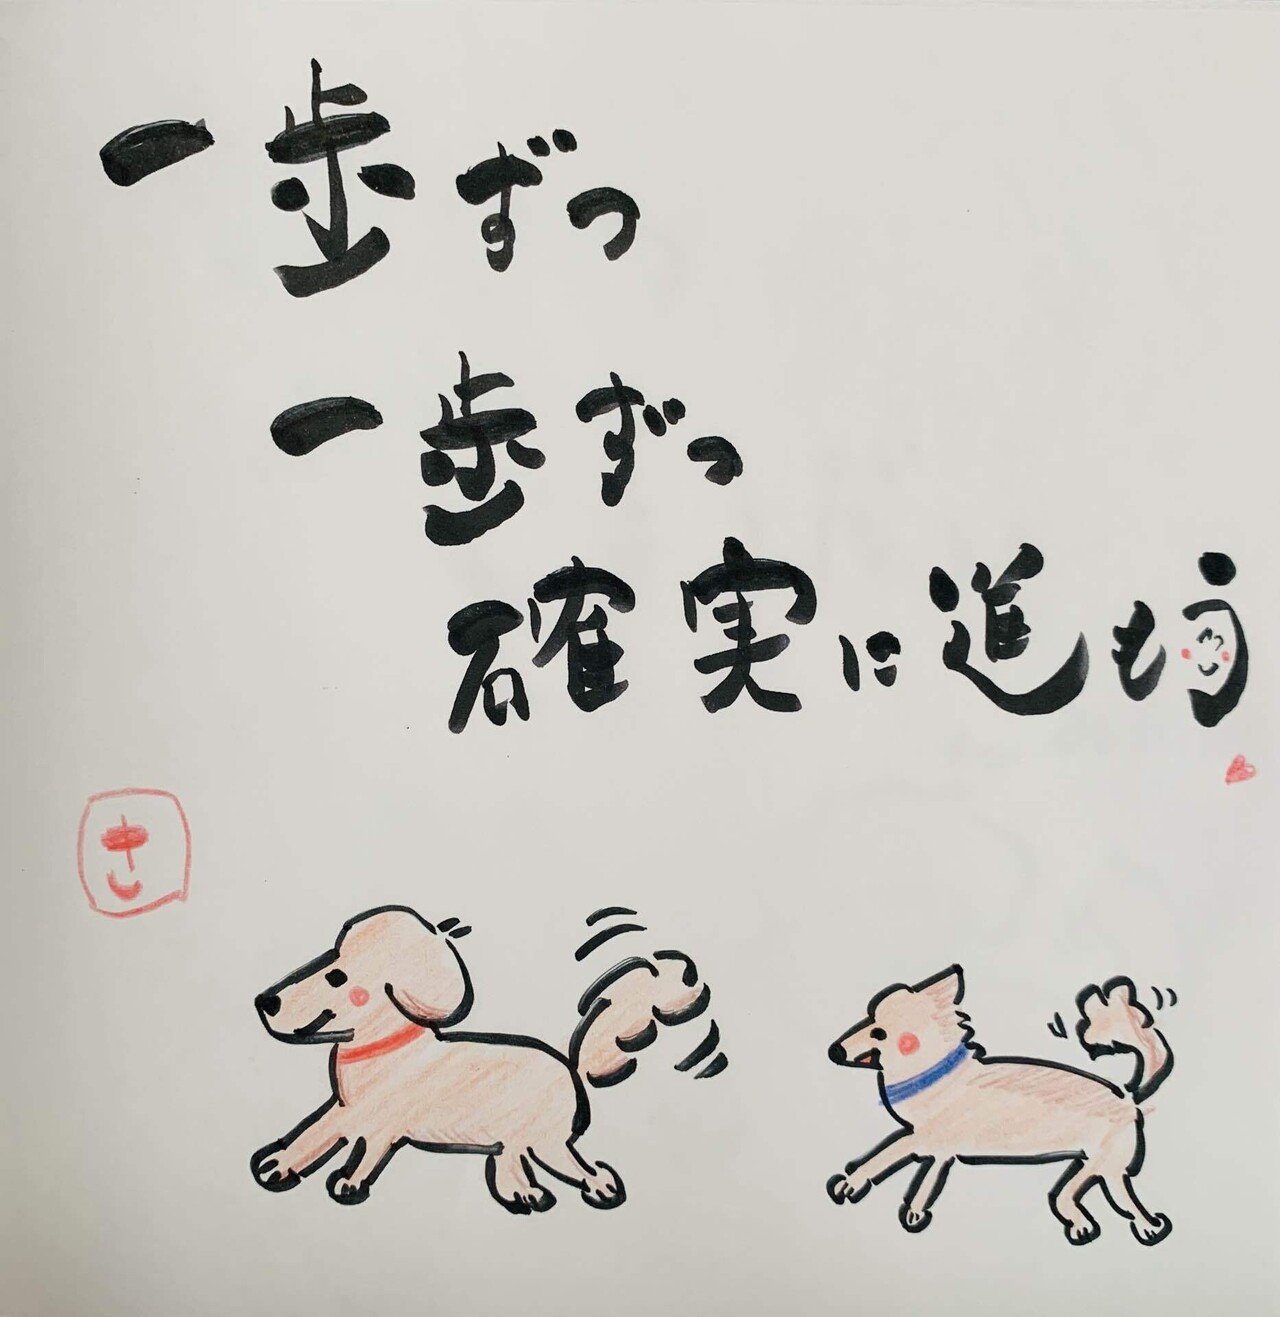 一歩ずつ
一歩ずつ
確実に進もう
さ